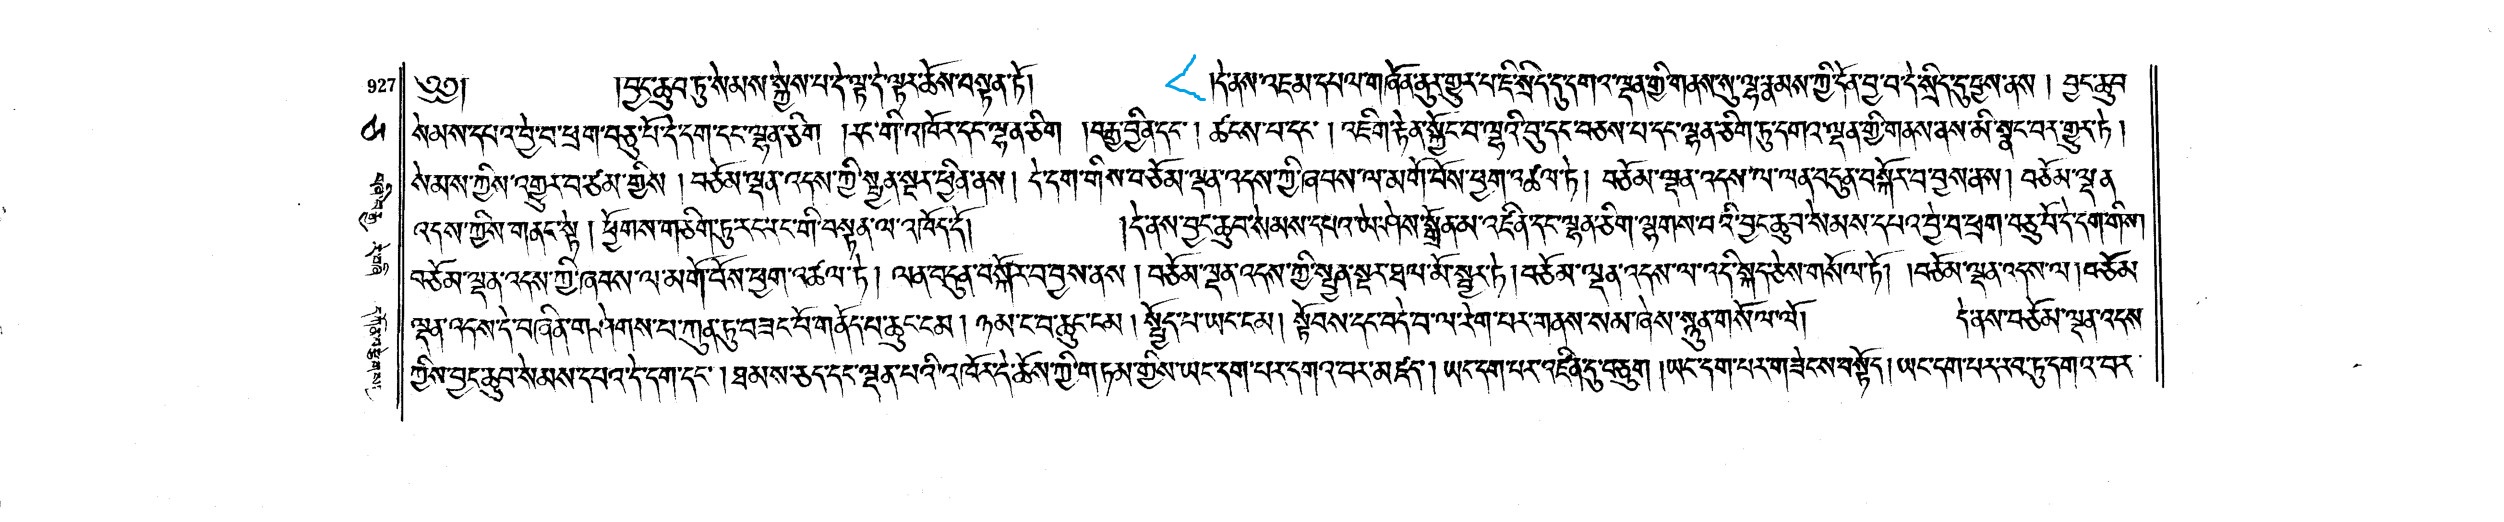 927
༄༅། །བྱང་ཆུབ་ཏུ་སེམས་སྐྱེས་པ་དེ་ལྟ་དེ་ལྟར་ཆོས་བསྟན་ཏོ། །དེ་ནས་འཇམ་དཔལ་གཞོན་ནུར་གྱུར་པ་ཇི་སྲིད་དུ་དགའ་ལྡན་གྱི་གནས་སུ་ལྷ་རྣམས་ཀྱི་དོན་བྱ་བ་དེ་སྲིད་དུ་བྱས་ནས། བྱང་ཆུབ
སེམས་དཔའ་བྱེ་བ་ཕྲག་བཅུ་པོ་དེ་དག་དང་ལྷན་ཅིག །རང་གི་འཁོར་དང་ལྷན་ཅིག །བརྒྱ་བྱིན་དང་། ཚངས་པ་དང་། འཇིག་རྟེན་སྐྱོང་བ་ལྷའི་བུ་དང་བཅས་པ་དང་ལྷན་ཅིག་ཏུ་དགའ་ལྡན་གྱི་གནས་ནས་མི་སྣང་བར་གྱུར་ཏེ།
སེམས་ཀྱིས་འགྱུར་བ་ཙམ་གྱིས། བཅོམ་ལྡན་འདས་ཀྱི་སྤྱན་སྔར་ཕྱིན་ནས། དེ་དག་གིས་བཅོམ་ལྡན་འདས་ཀྱི་ཞབས་ལ་མགོ་བོས་ཕྱག་འཚལ་ཏེ། བཅོམ་ལྡན་འདས་ལ་ལན་བདུན་བསྐོར་བ་བྱས་ནས། བཅོམ་ལྡན
འདས་ཀྱིས་གནང་སྟེ། ཕྱོགས་གཅིག་ཏུ་རང་རང་གི་བསྟན་ལ་འཁོད་དོ། །དེ་ནས་བྱང་ཆུབ་སེམས་དཔའ་ཡེ་ཤེས་སྒྲོན་མ་འཛིན་དང་ལྷན་ཅིག་ལྷགས་པའི་བྱང་ཆུབ་སེམས་དཔའ་བྱེ་བ་ཕྲག་བཅུ་པོ་དེ་དག་གིས།
བཅོམ་ལྡན་འདས་ཀྱི་ཞབས་ལ་མགོ་བོས་ཕྱག་འཚལ་ཏེ། ལན་བདུན་བསྐོར་བ་བྱས་ནས། བཅོམ་ལྡན་འདས་ཀྱི་སྤྱན་སྔར་ཐལ་མོ་སྦྱར་ཏེ། བཅོམ་ལྡན་འདས་ལ་འདི་སྐད་ཅེས་གསོལ་ཏོ། །བཅོམ་ལྡན་འདས་ལ། བཅོམ
ལྡན་འདས་དེ་བཞིན་གཤེགས་པ་ཀུན་ཏུ་བཟང་པོ་གནོད་པ་ཆུང་ངམ། ཉམ་ང་བ་ཆུང་ངམ། སྐྱོད་པ་ཡང་ངམ། སྟོབས་དང་བདེ་བ་ལ་རེག་པར་གནས་སམ་ཞེས་སྙུན་གསོལ་ལོ། དེ་ནས་བཅོམ་ལྡན་འདས
ཀྱིས་བྱང་ཆུབ་སེམས་དཔའ་དེ་དག་དང་། ཐམས་ཅད་དང་ལྡན་པའི་འཁོར་དེ་ཆོས་ཀྱི་གཏམ་གྱིས་ཡང་དག་པར་དགའ་བར་མཛད། ཡང་དག་པར་འཛིན་དུ་བཅུག །ཡང་དག་པར་གཟེངས་བསྟོད། ཡང་དག་པར་རབ་ཏུ་དགའ་བར